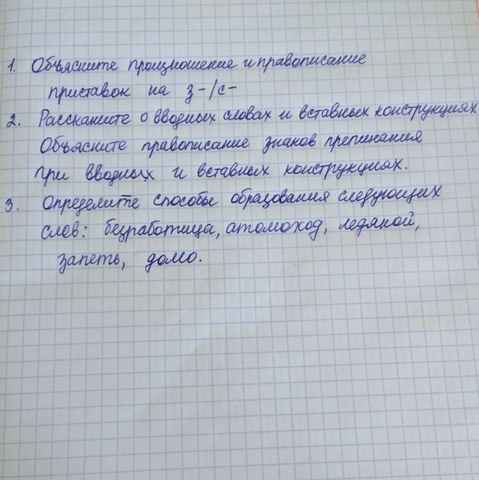 1. Объясните произношение и правописание
приставок на з-/с-
2. Расскажите о вводных словах и вставных конструкциях
Объясните правописание знаков препинания
при вводных и вставных конструкциях.
3. Определите способы образования следующих
слов: безработица, атомоход, ледяной,
запеть, домо.